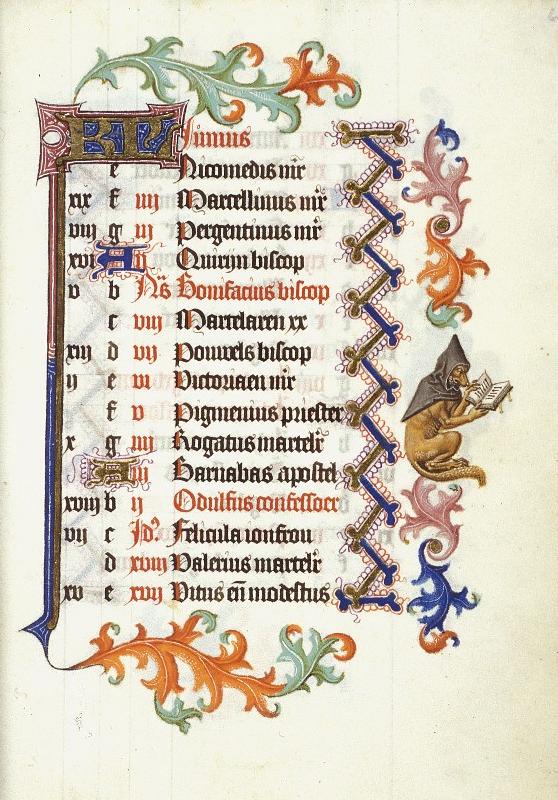 KL Iunius
e Nicomedis mr
xix f iiij Marcellinus mr
viij g iij Pergentinus mr
xvi A ij Quirijn biscop
v b Ns Bonifacius biscop
c viij Martelaren xx
xiij d vij Pouwels biscop
ij e vi Victoriaen mr
f v Pigmenius priester
x g iiij Rogatus martelr
A iij Barnabas apostel
xviij b ij Odulfus confessoer
vij c Id9 Felicula ioncfrou
d xviij Valerius martelr
xv e xvij Vitus en modestus